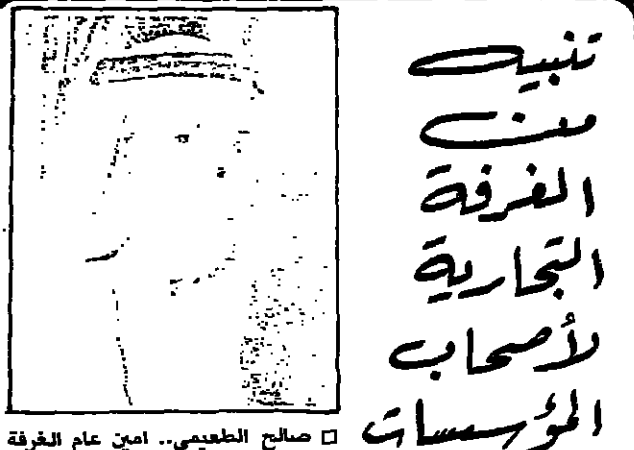 تنبيه
من
الغرفة
التجارية
لأصحاب
المؤسسات
□ صالح الطعيمي.. امين عام الغرفة